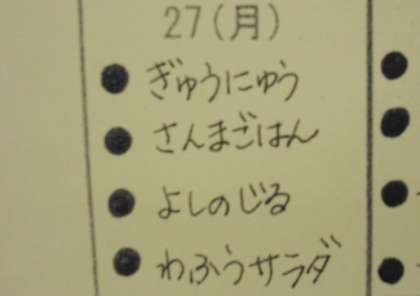 27(月)
● ぎゅうにゅう
● さんまごはん
● よしのじる
● わふうサラダ